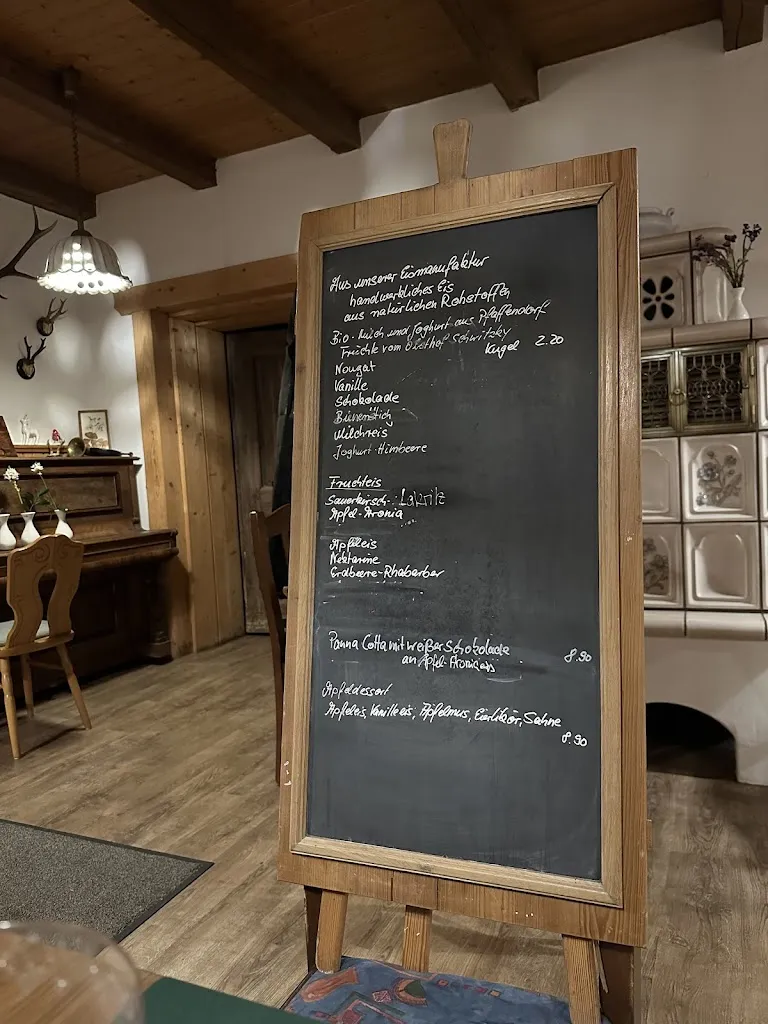 Aus unserer Eismanufaktur
handwerkliches Eis
aus natürlichen Rohstoffen
Bio-Milch und Joghurt aus Pfaffendorf
Früchte vom Obsthof Schwitzky
Kugel 2.20
Nougat
Vanille
Schokolade
Bienenstich
Milchreis
Joghurt-Himbeere
Fruchteis
Sauerkirsch-Lakritz
Apfel-Aronia
Apfeleis
Nektarine
Erdbeere-Rhabarber
Panna Cotta mit weißer Schokolade 8.90
an Apfel-Aroniaeis
Apfeldessert
Apfeleis, Vanilleeis, Apfelmus, Eierlikör, Sahne
8.90